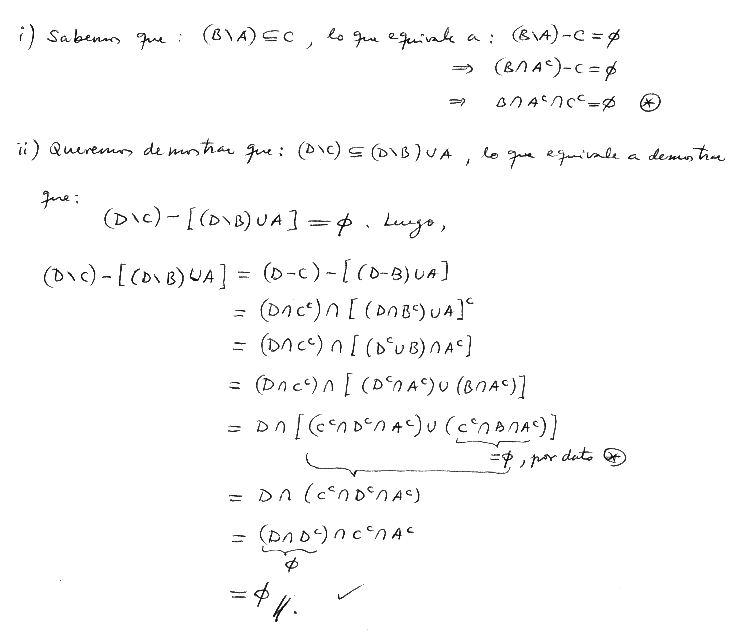 i) Sabemos que : (B\A) ⊆ C , lo que equivale a : (B\A) - C = ϕ
⇒ (B∩Aᶜ) - C = ϕ
⇒ B∩Aᶜ∩Cᶜ = ϕ ⊛
ii) Queremos demostrar que : (D\C) ⊆ (D\B) ∪ A , lo que equivale a demostrar
que :
(D\C) - [(D\B) ∪ A] = ϕ . Luego,
(D\C) - [(D\B) ∪ A] = (D-C) - [(D-B) ∪ A]
= (D∩Cᶜ) ∩ [(D∩Bᶜ) ∪ A]ᶜ
= (D∩Cᶜ) ∩ [(Dᶜ∪B) ∩ Aᶜ]
= (D∩Cᶜ) ∩ [(Dᶜ∩Aᶜ) ∪ (B∩Aᶜ)]
= D ∩ [(Cᶜ∩Dᶜ∩Aᶜ) ∪ (Cᶜ∩B∩Aᶜ)]
= ϕ , por dato ⊛
= D ∩ (Cᶜ∩Dᶜ∩Aᶜ)
= (D∩Dᶜ) ∩ Cᶜ∩Aᶜ
ϕ
= ϕ //. ✓